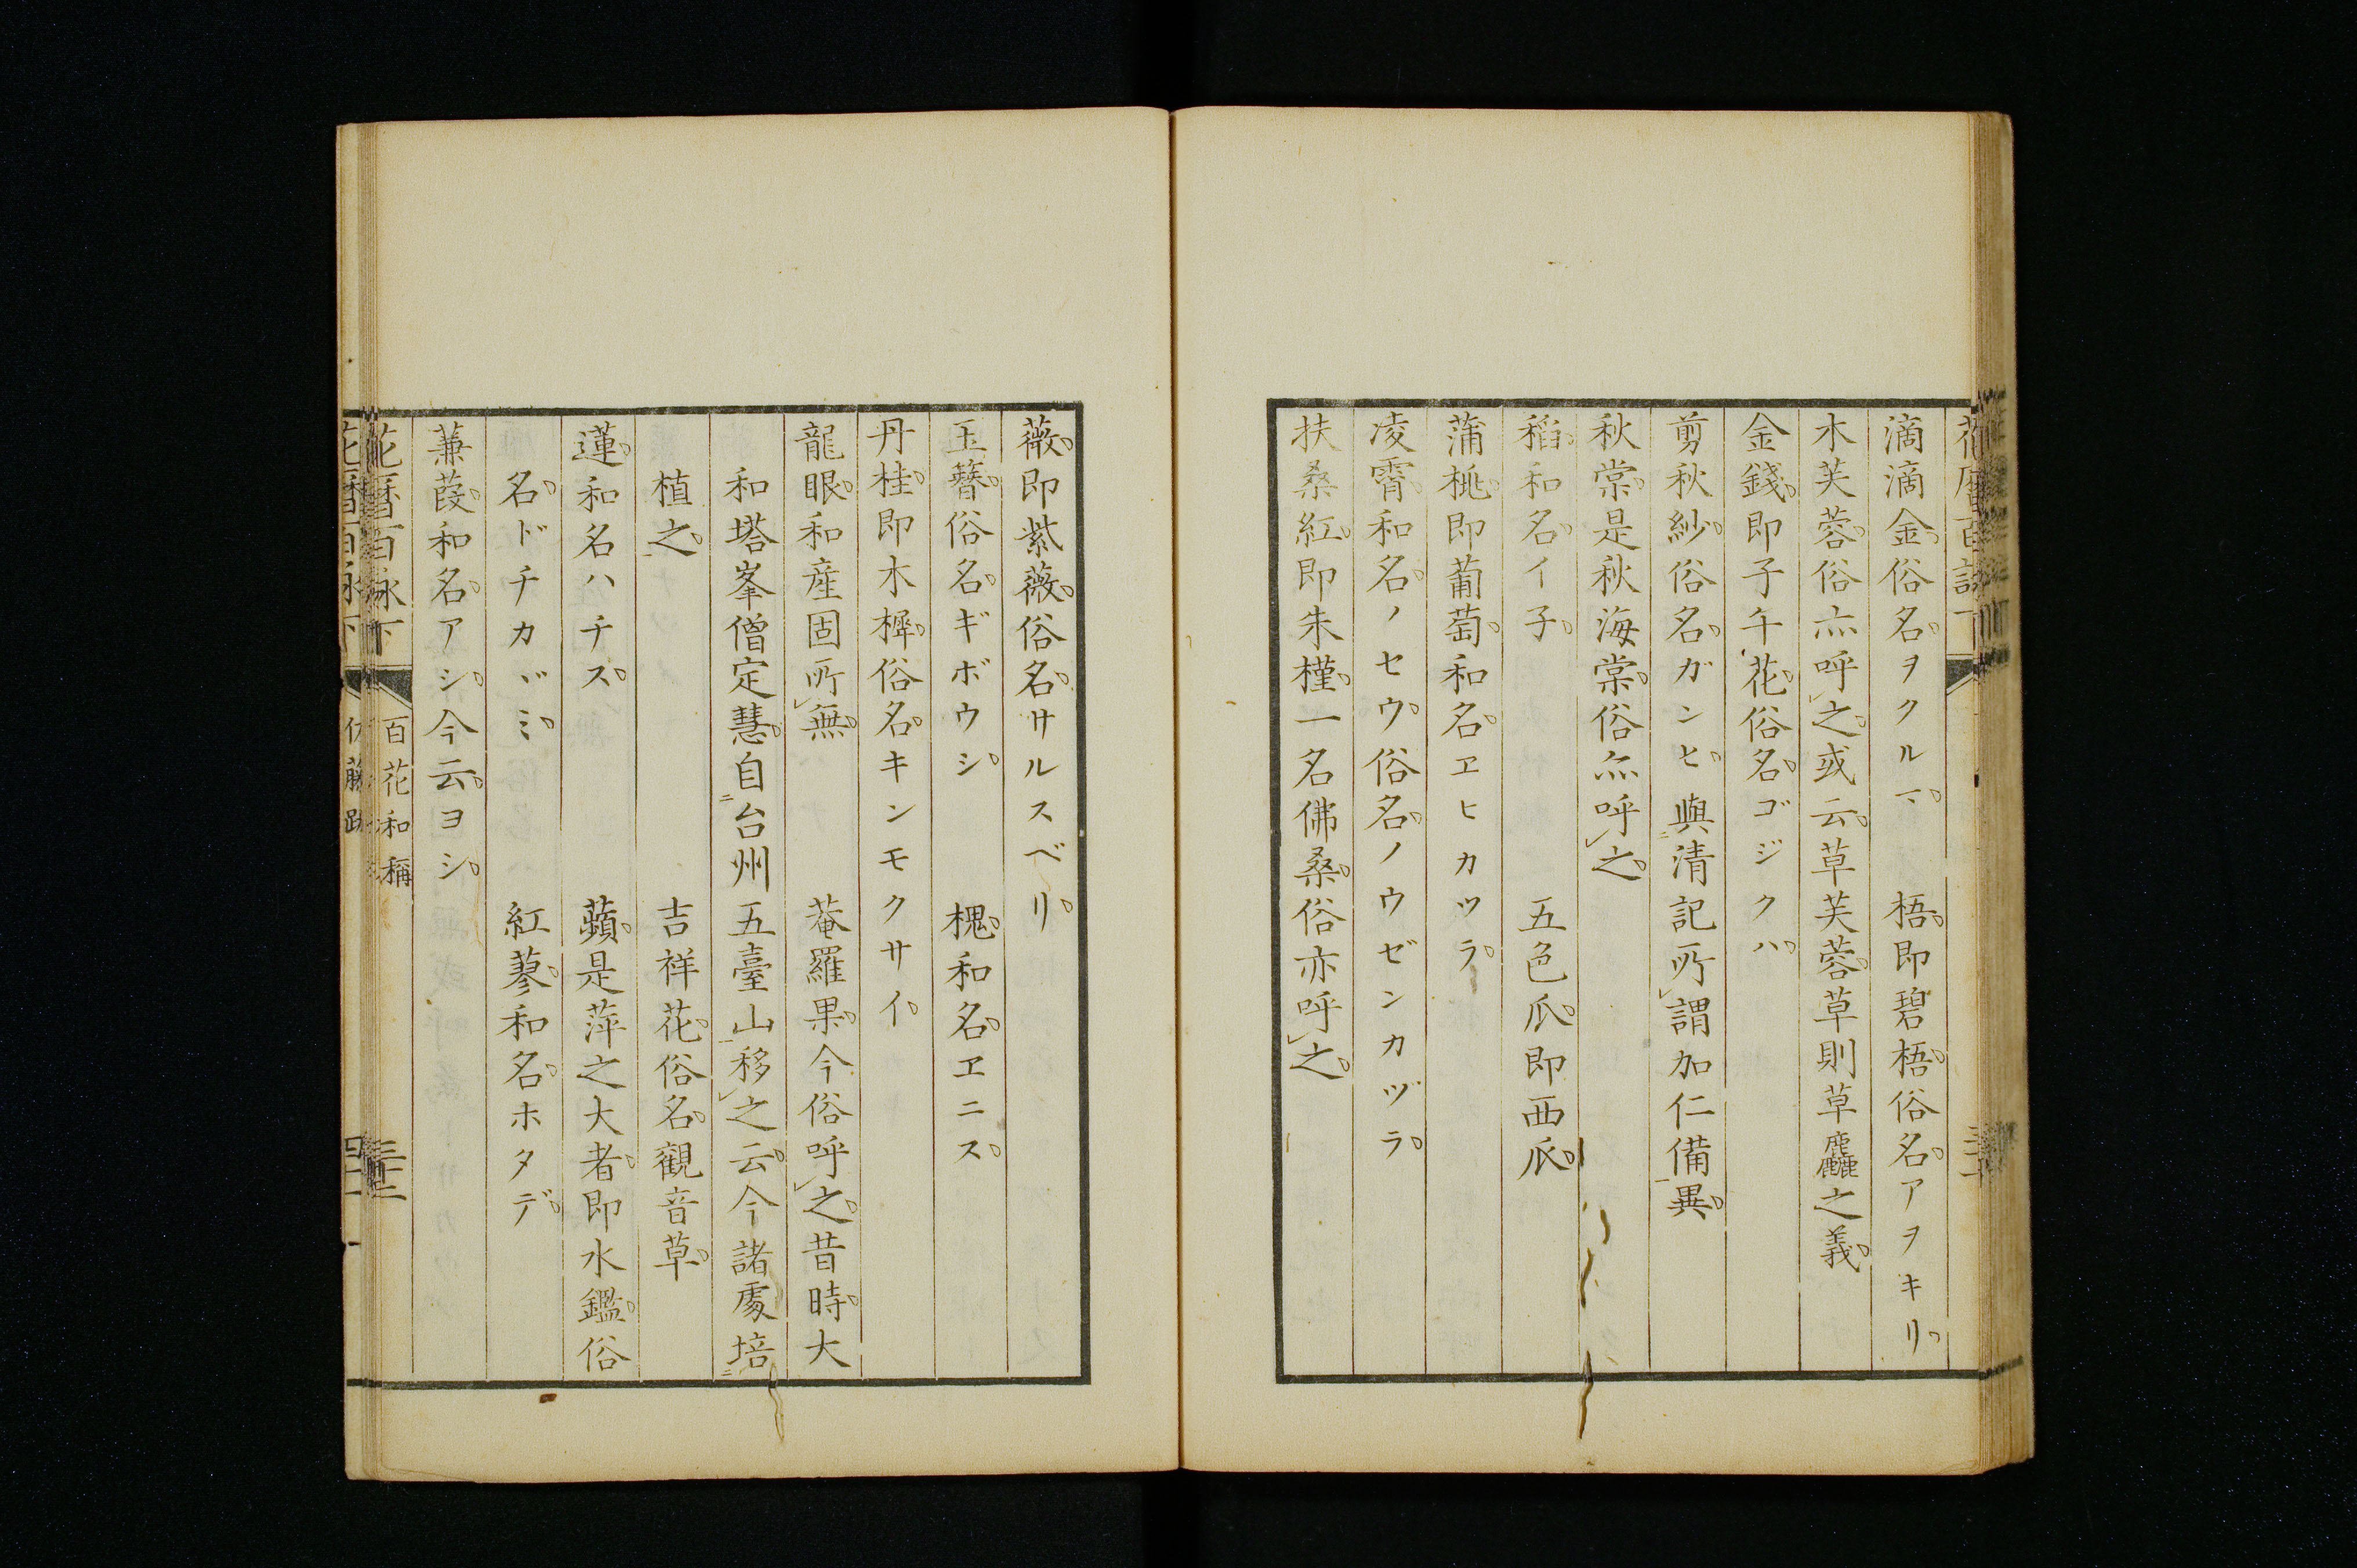 滴滴金。俗名。ヲクルマ。　梧。即碧梧。俗名。アヲキリ。
木芙蓉。俗亦呼㆑之。或云。草芙蓉。草則草麤之義。
金錢。即子午花。俗名。ゴジクハ。
剪秋紗。俗名。ガンヒ。與㆓清記所㆑謂加仁備㆒異。
秋棠。是秋海棠。俗亦呼㆑之。
稻。和名。イ子。　五色瓜。即西瓜。
蒲桃。即葡萄。和名。ヱヒカツラ。
凌霄。和名。ノセウ。俗名。ノウゼンカヅラ。
扶桑紅。即朱槿。一名佛桑。俗亦呼㆑之。
薇。即紫薇。俗名。サルスベリ。
玉簪。俗名。ギボウシ。　槐。和名。ヱニス。
丹桂。即木樨。俗名。キンモクサイ。
龍眼。和産固所㆑無。　菴羅果。今俗呼㆑之。昔時。大
和塔峯僧定慧。自㆓台州五臺山㆒移㆑之云。今諸處培㆓
植之㆒。　吉祥花。俗名。觀音草。
蓮。和名ハチス。　蘋。是萍之大者。即水鑑。俗
名。ドチカヾミ。　紅蓼。和名。ホタデ。
蒹葭。和名。アシ。今云。ヨシ。
花曆百詠下　百花和稱